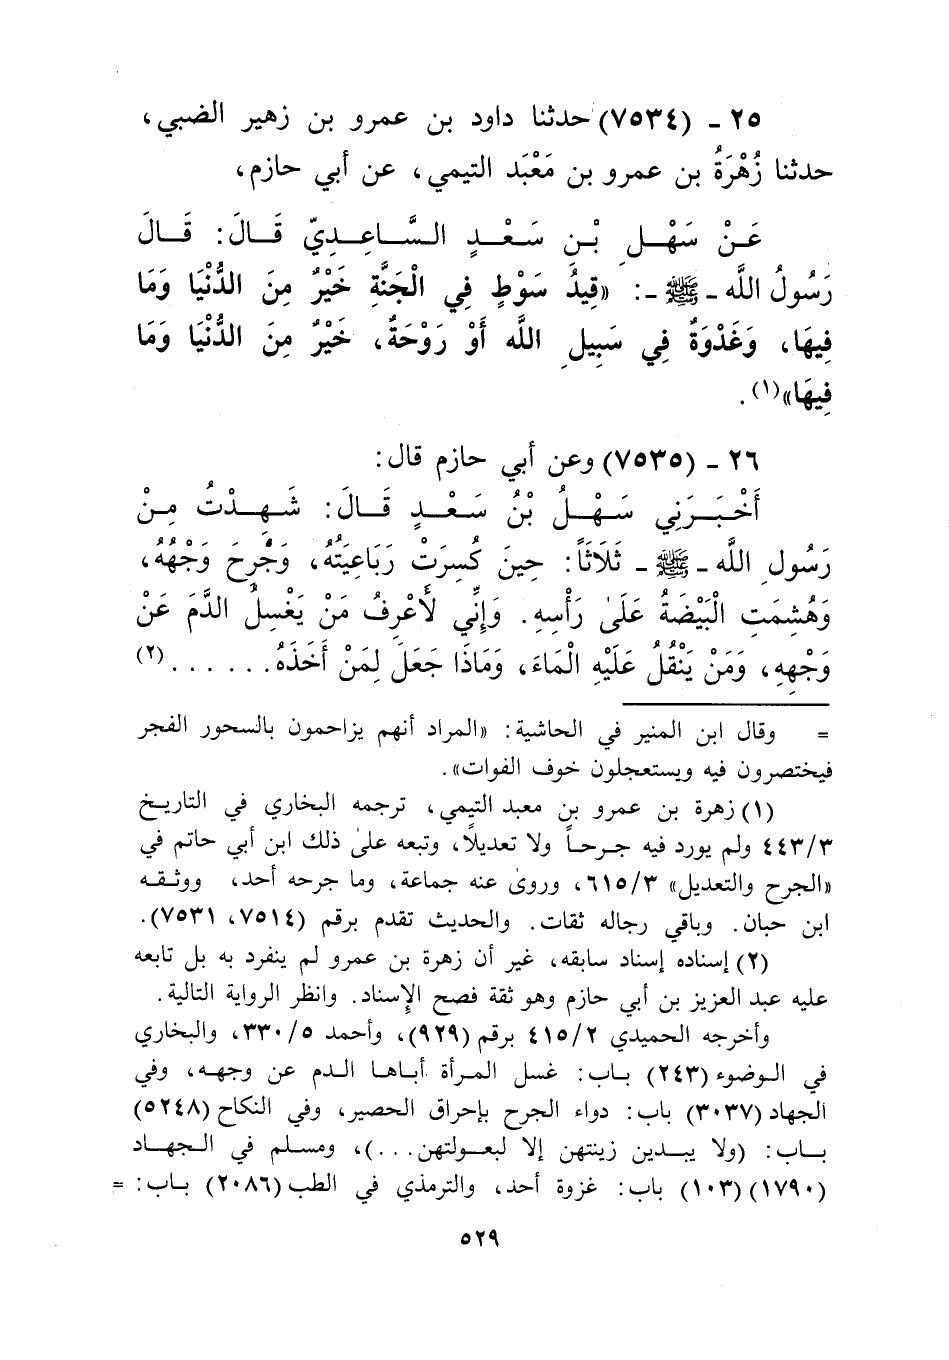 ٢٥ - (٧٥٣٤) حدثنا داود بن عمرو بن زهير الضبي،
حدثنا زُهْرَةُ بن عمرو بن مَعْبَد التيمي، عن أبي حازم،
عَـنْ سَهْـلِ بْـنِ سَـعْـدٍ الـسَّـاعِـدِيّ قَـالَ: قَـالَ
رَسُولُ اللَّه - ﷺ -: «قِيدُ سَوْطٍ فِي الْجَنَّةِ خَيْرٌ مِنَ الدُّنْيَا وَمَا
فِيهَا، وَغَدْوَةٌ فِي سَبِيلِ اللَّه أَوْ رَوْحَةٌ، خَيْرٌ مِنَ الدُّنْيَا وَمَا
فِيهَا»(١).
٢٦ - (٧٥٣٥) وعن أبي حازم قال:
أَخْـبَـرَنِي سَـهْـلُ بْنُ سَـعْـدٍ قَـالَ: شَـهِـدْتُ مِـنْ
رَسُولِ اللَّه - ﷺ - ثَلَاثَاً: حِينَ كُسِرَتْ رَبَاعِيَتُهُ، وَجُرِحَ وَجْهُهُ،
وَهُشِمَتِ الْبَيْضَةُ عَلَىٰ رَأْسِهِ. وَإِنِّي لَأَعْرِفُ مَنْ يَغْسِلُ الدَّمَ عَنْ
وَجْهِهِ، وَمَنْ يَنْقُلُ عَلَيْهِ الْمَاءَ، وَمَاذَا جَعَلَ لِمَنْ أَخَذَهُ. . . . . .(٢)
= وقال ابن المنير في الحاشية: «المراد أنهم يزاحمون بالسحور الفجر
فيختصرون فيه ويستعجلون خوف الفوات».
(١) زهرة بن عمرو بن معبد التيمي، ترجمه البخاري في التاريخ
٤٤٣/٣ ولم يورد فيه جـرحـاً ولا تعديلًا، وتبعه علىٰ ذلك ابن أبي حاتم في
«الجرح والتعديل» ٦١٥/٣، وروىٰ عنه جماعة، وما جرحه أحد، ووثـقـه
ابن حبان. وباقي رجاله ثقات. والحديث تقدم برقم (٧٥١٤، ٧٥٣١).
(٢) إسناده إسناد سابقه، غير أن زهرة بن عمرو لم ينفرد به بل تابعه
عليه عبد العزيز بن أبي حازم وهو ثقة فصح الإسناد. وانظر الرواية التالية.
وأخرجه الحميدي ٤١٥/٢ برقم (٩٢٩)، وأحمد ٣٣٠/٥، والبخاري
في الـوضوء (٢٤٣) بـاب: غسل المـرأة أبـاهـا الـدم عن وجهـه، وفي
الجهاد (٣٠٣٧) باب: دواء الجرح بإحراق الحصير، وفي النكاح (٥٢٤٨)
بـاب: (ولا يبـدين زينتهن إلا لبعـولتهن...)، ومسلـم في الـجهـاد
(١٧٩٠) (١٠٣) باب: غزوة أحد، والترمذي في الطب (٢٠٨٦) بـاب: =
٥٢٩